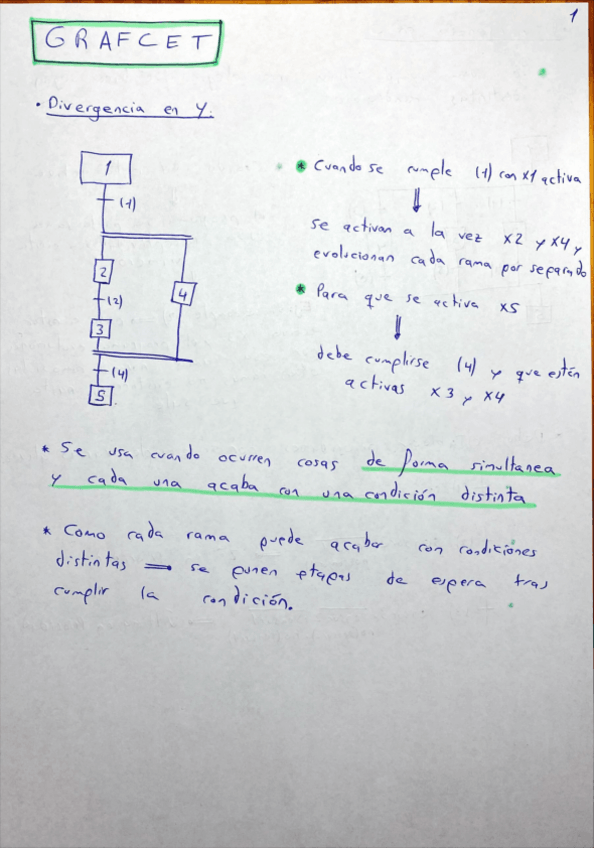 1
GRAFCET
• Divergencia en Y.
1
(1)
2
4
(2)
3
(4)
5
* Cuando se cumple (1) con X1 activa
⇓
se activan a la vez X2 y X4 y
evolucionan cada rama por separado
* Para que se activa X5
⇓
debe cumplirse (4) y que estén
activas X3 y X4
* Se usa cuando ocurren cosas de forma simultanea
y cada una acaba con una condición distinta
* Como cada rama puede acabar con condiciones
distintas ⇒ se ponen etapas de espera tras
cumplir la condición.